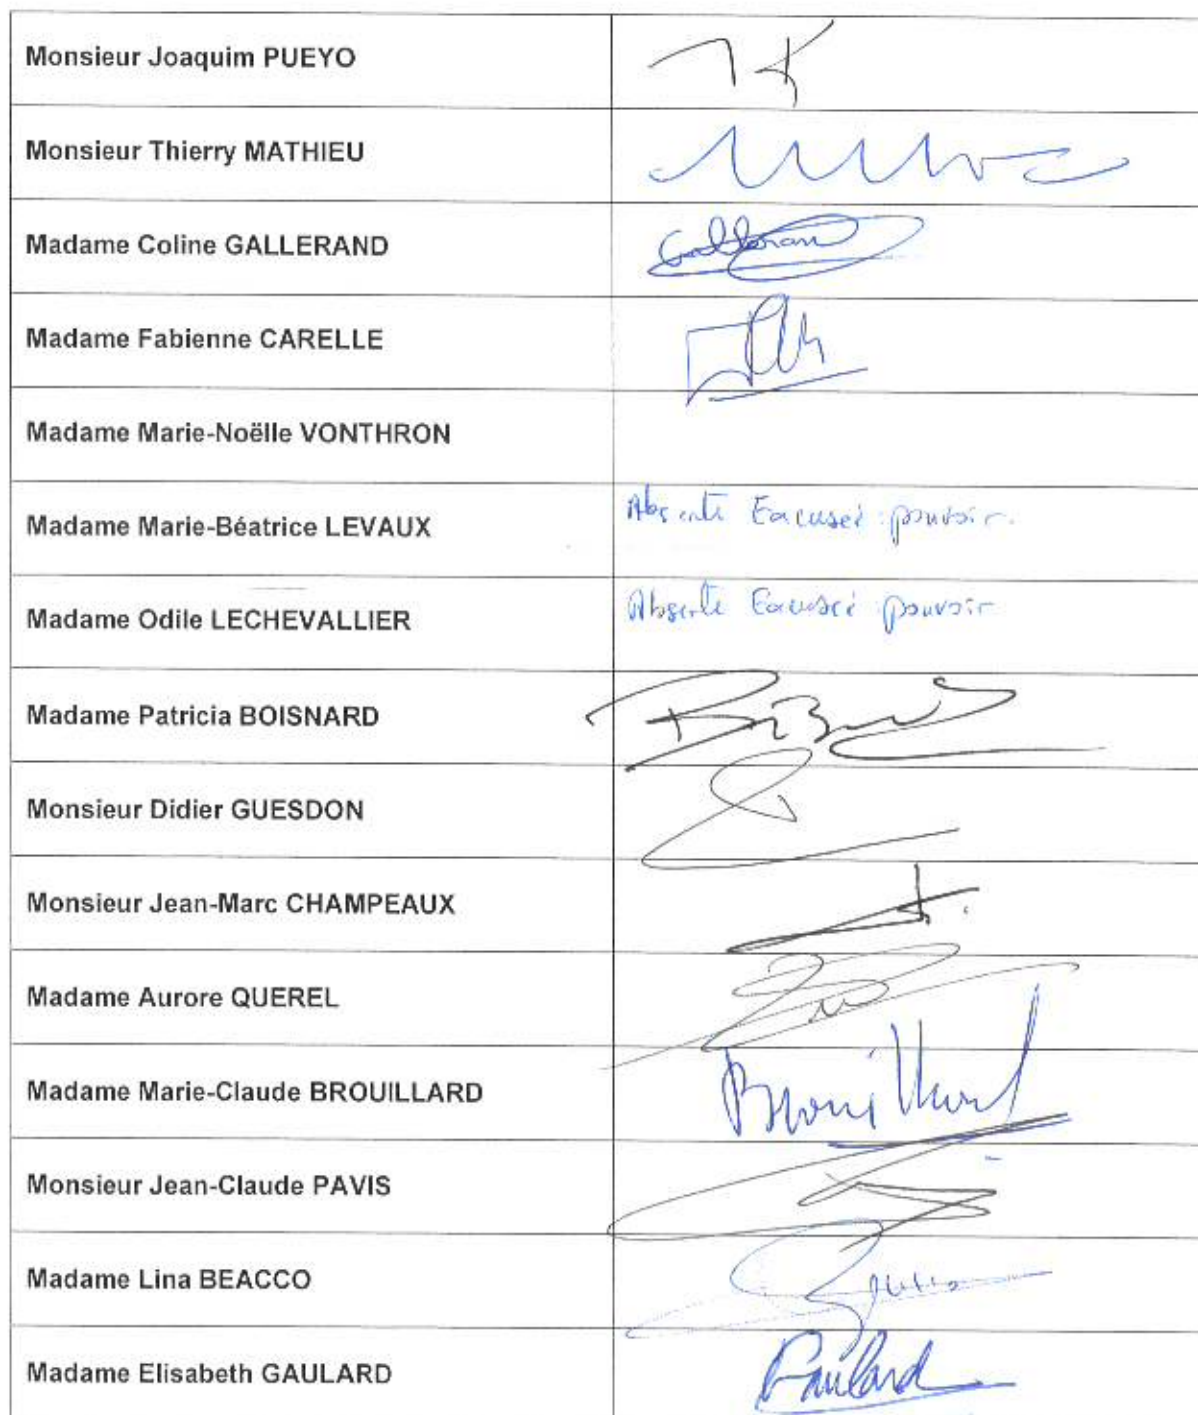 Monsieur Joaquim PUEYO
Monsieur Thierry MATHIEU
Madame Coline GALLERAND
Gallerand
Madame Fabienne CARELLE
Madame Marie-Noëlle VONTHRON
Madame Marie-Béatrice LEVAUX
Absente Excusée pouvoir.
Madame Odile LECHEVALLIER
Absente Excusée pouvoir
Madame Patricia BOISNARD
Monsieur Didier GUESDON
Monsieur Jean-Marc CHAMPEAUX
Madame Aurore QUEREL
Madame Marie-Claude BROUILLARD
Brouillard
Monsieur Jean-Claude PAVIS
Madame Lina BEACCO
Madame Elisabeth GAULARD
Gaulard